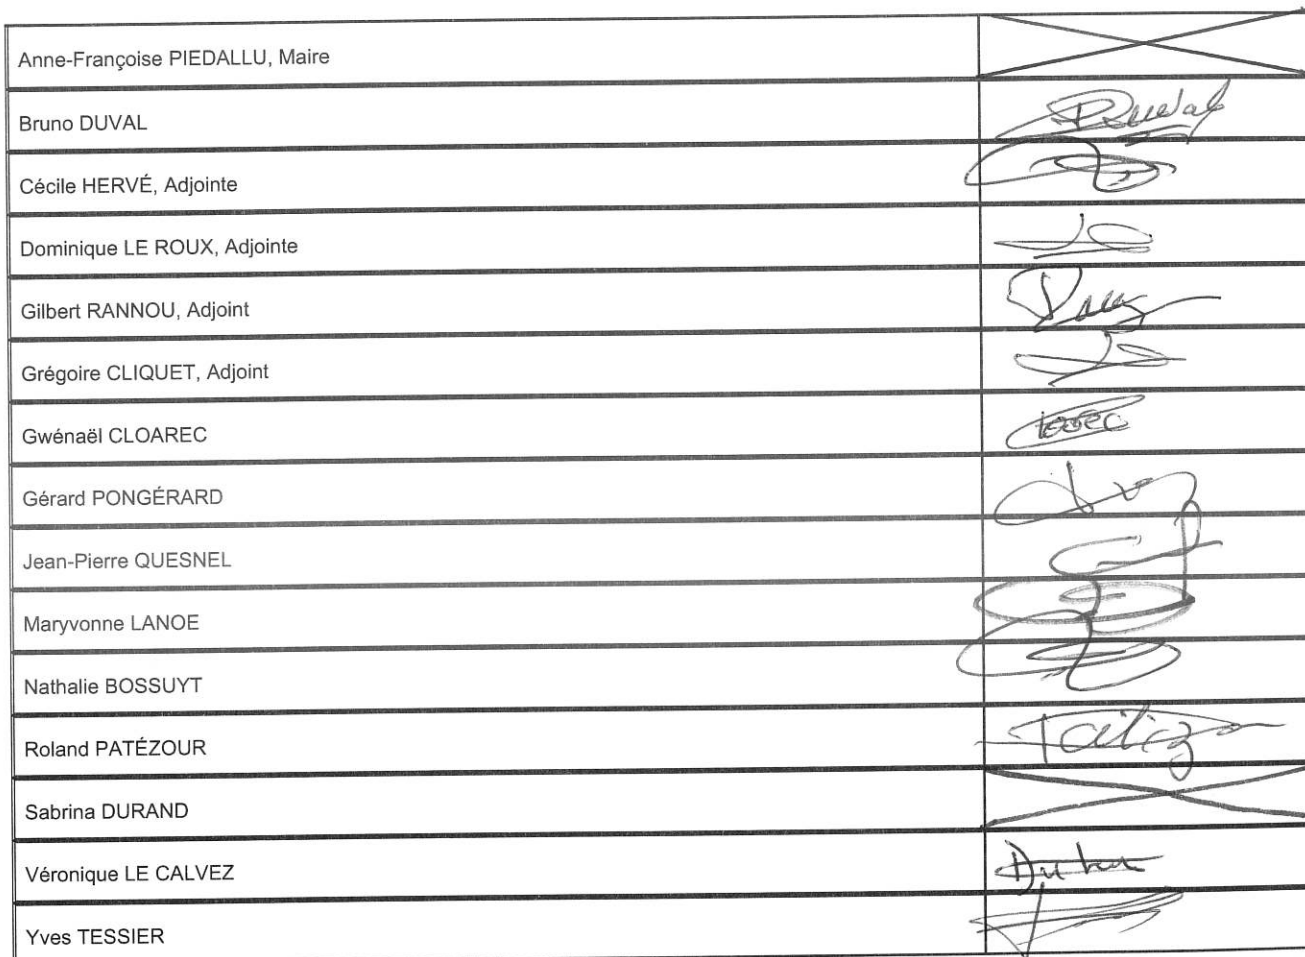 Anne-Françoise PIEDALLU, Maire
Bruno DUVAL
Cécile HERVÉ, Adjointe
Dominique LE ROUX, Adjointe
Gilbert RANNOU, Adjoint
Grégoire CLIQUET, Adjoint
Gwénaël CLOAREC
Gérard PONGÉRARD
Jean-Pierre QUESNEL
Maryvonne LANOE
Nathalie BOSSUYT
Roland PATÉZOUR
Sabrina DURAND
Véronique LE CALVEZ
Yves TESSIER